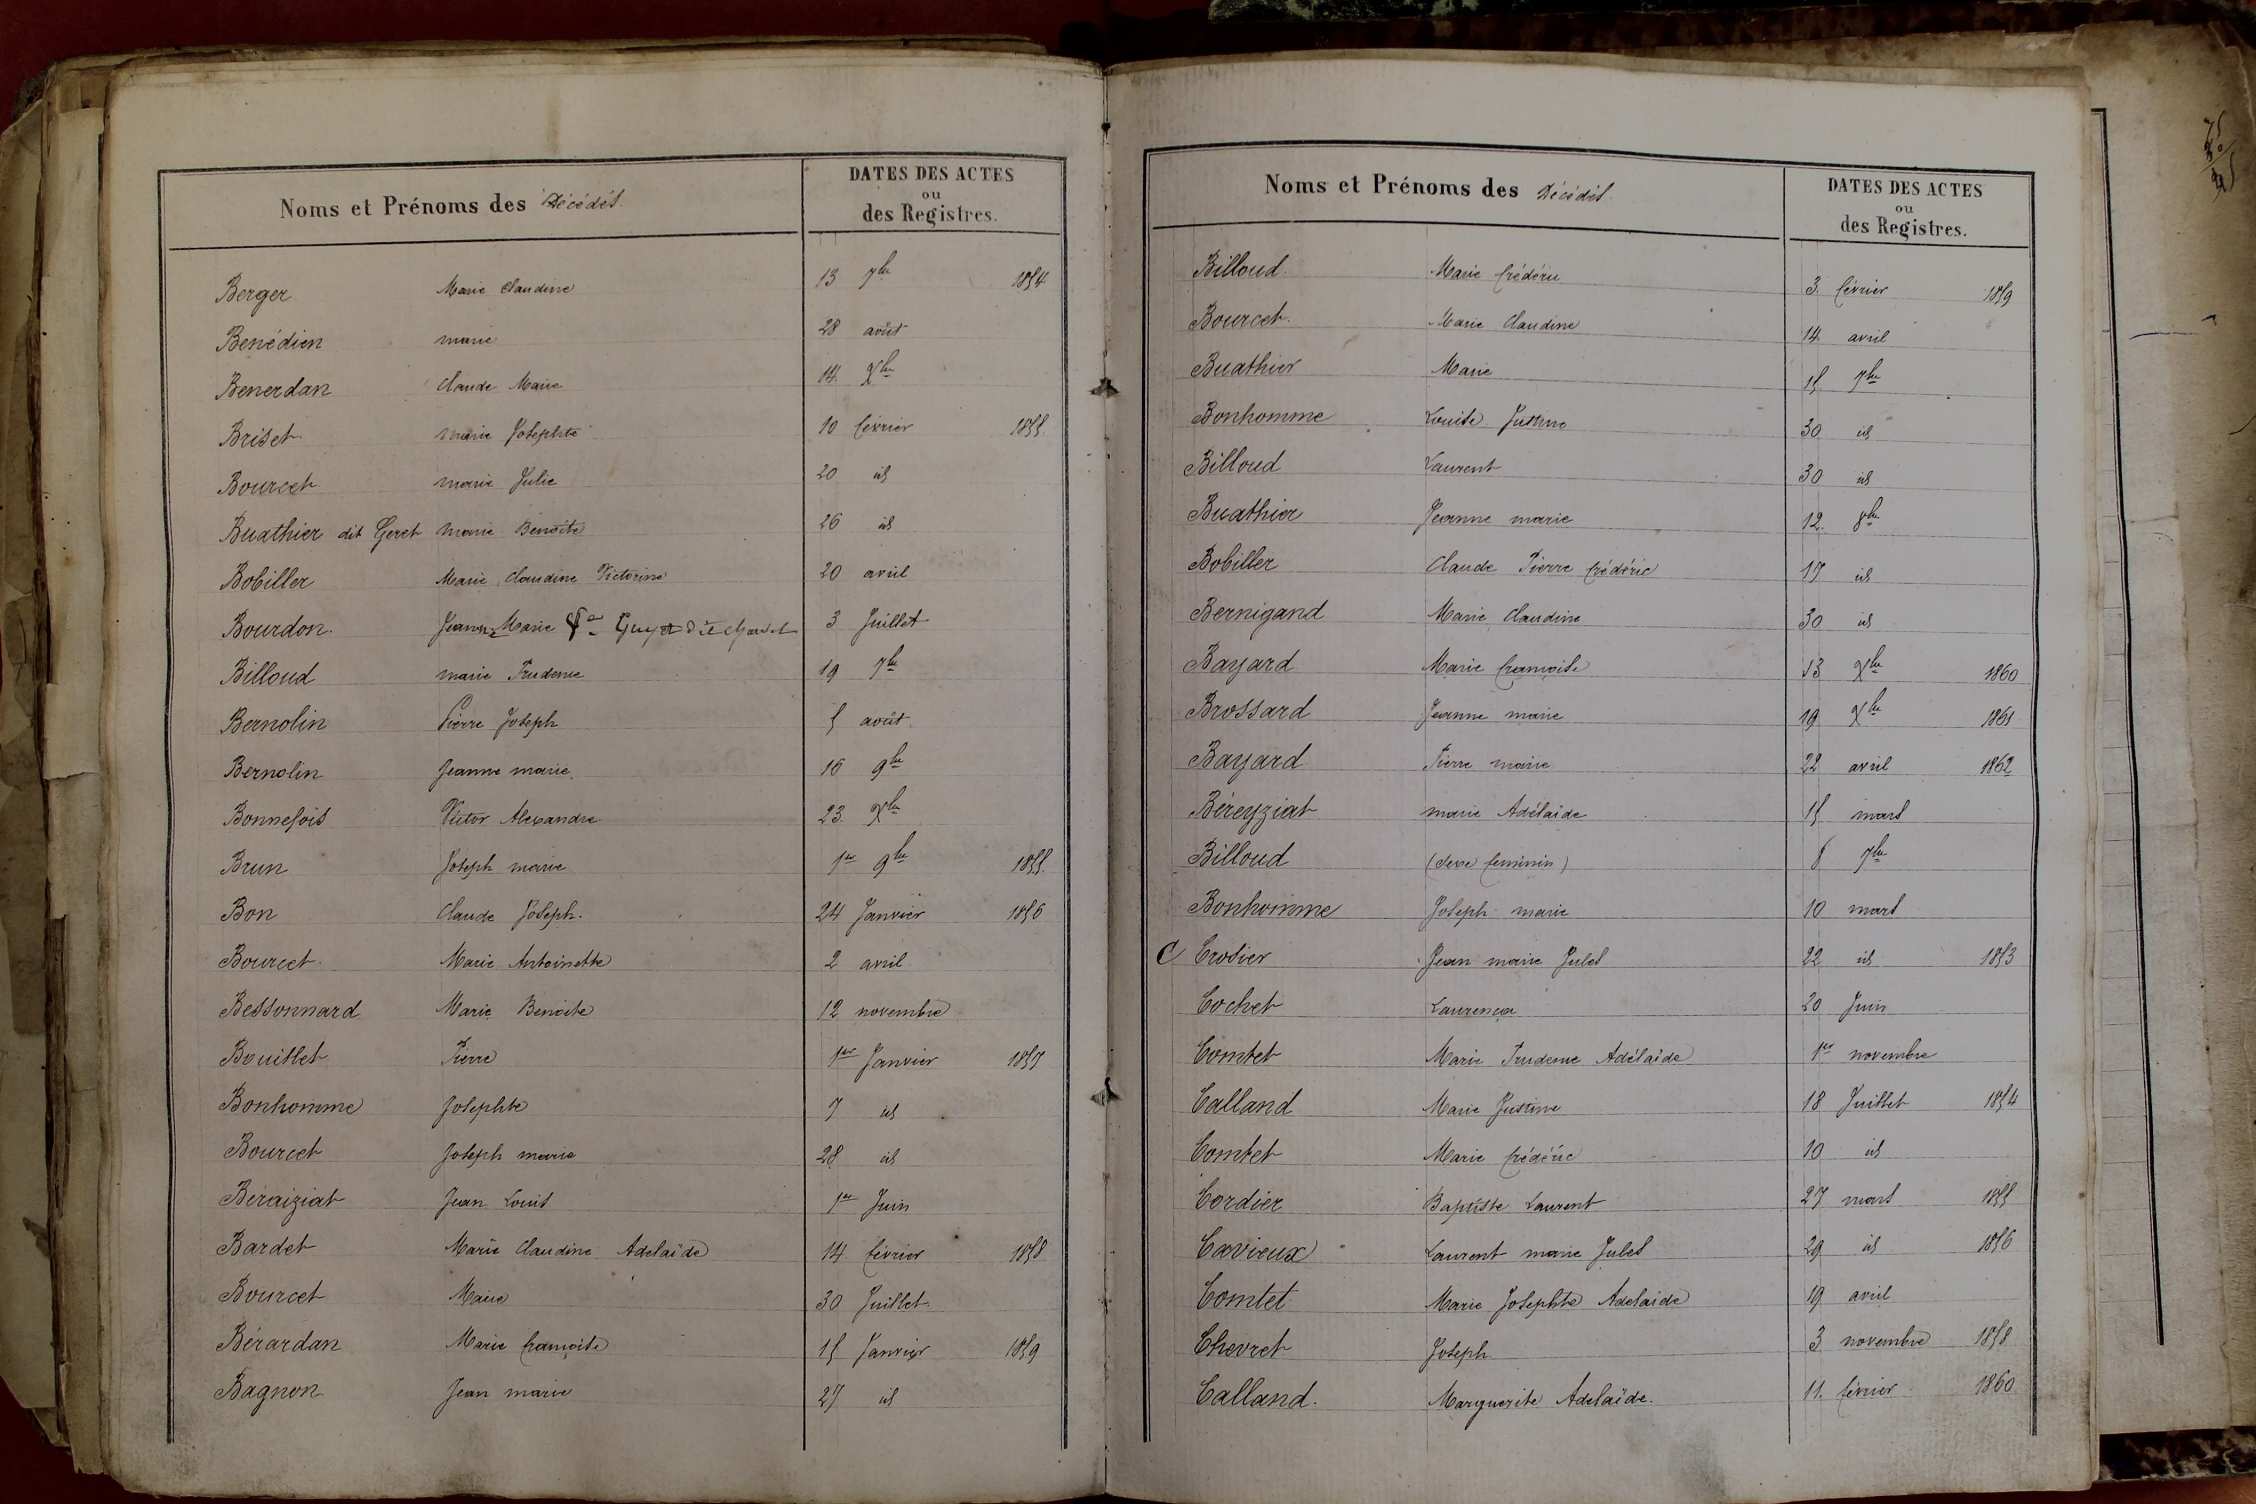 Noms et Prénoms des Décédés.
DATES DES ACTES
ou
des Registres.
Berger Marie Claudine 13 7bre 1854
Benédien marie 28 août
Benerdan Claude Marie 14 Xbre
Briset marie Josephte 10 février 1855
Bourcet marie Julie 20 id
Buathier dit Geret Marie Benoite 26 id
Bobiller Marie Claudine Victorine 20 avril
Bourdon Jeanne Marie Guyat dit 3 Juillet
Billoud marie Prudence 19 7bre
Bernolin Pierre Joseph 5 août
Bernolin Jeanne marie 16 9bre
Bonnefois Victor Alexandre 23 Xbre
Brun Joseph marie 1er 9bre 1855
Bon Claude Joseph. 24 Janvier 1856
Bourcet Marie Antoinette 2 avril
Bessonnard Marie Benoite 12 novembre
Bouillet Pierre 1er Janvier 1857
Bonhomme Josephte 7 id
Bourcet Joseph marie 28 id
Beraiziat Jean Louis 1er Juin
Bardet Marie Claudine Adelaïde 14 février 1858
Bourcet Marie 30 Juillet
Bérardan Marie françoise 15 Janvier 1859
Bagnon Jean marie 27 id
Noms et Prénoms des Décédés.
DATES DES ACTES
ou
des Registres.
Billoud Marie frédéric 3 février 1859
Bourcet Marie Claudine 14 avril
Buathier Marie 15 7bre
Bonhomme Louise Justine 30 id
Billoud Laurent 30 id
Buathier Jeanne marie 12 8bre
Bobiller Claude Pierre frédéric 17 id
Bernigand Marie Claudine 30 id
Bayard Marie françoise 13 Xbre 1860
Brossard Jeanne marie 19 Xbre 1861
Bayard Pierre marie 22 avril 1862
Béreyziat marie Adélaïde 15 mars
Billoud (sexe féminin) 8 7bre
Bonhomme Joseph marie 10 mars
C Crosier Jean marie Jules 22 id 1853
Cochet Laurença 20 Juin
Comtet Marie Prudence Adélaïde 1er novembre
Calland Marie Justine 18 Juillet 1854
Comtet Marie frédéric 10 id
Cordier Baptiste Laurent 27 mars 1855
Cavieux Laurent marie Jules 29 id 1856
Comtet Marie Josephte Adelaïde 19 avril
Chevret Joseph 3 novembre 1858
Calland. Marguerite Adelaïde. 11. février 1860